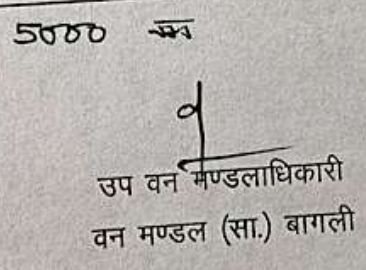 5000
उप वन मण्डलाधिकारी
वन मण्डल (सा.) बागली